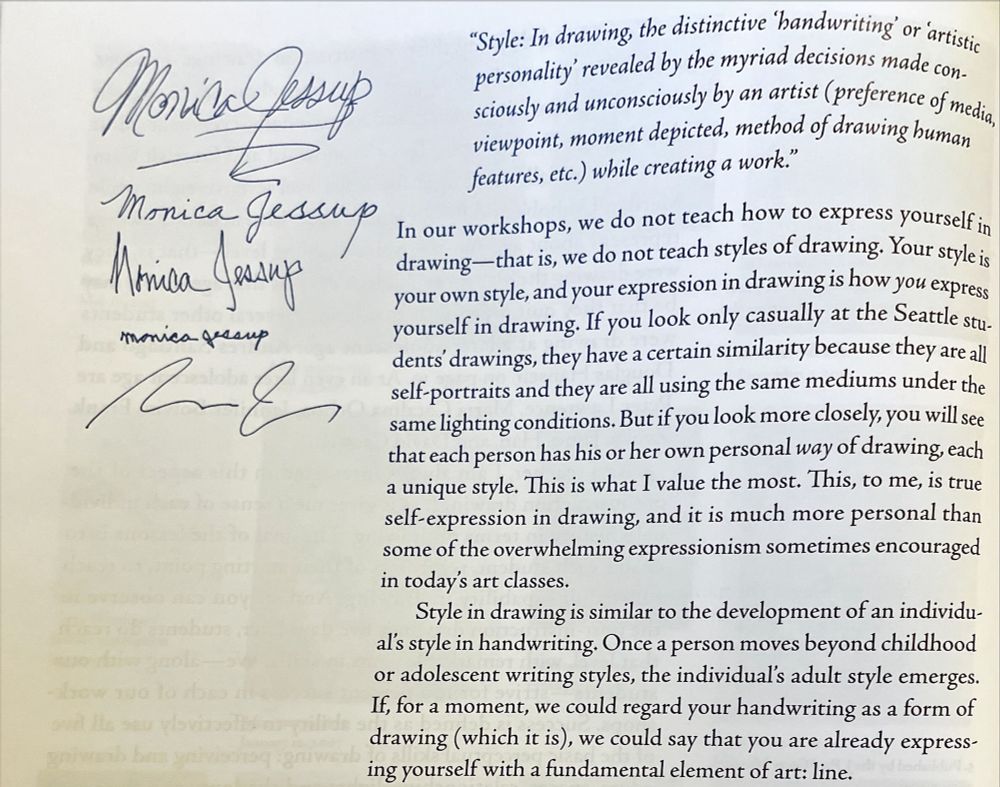 Monica Jessup
Monica Jessup
Monica Jessup
monica jessup
“Style: In drawing, the distinctive ‘handwriting’ or ‘artistic
personality’ revealed by the myriad decisions made con-
sciously and unconsciously by an artist (preference of media,
viewpoint, moment depicted, method of drawing human
features, etc.) while creating a work.”
In our workshops, we do not teach how to express yourself in
drawing—that is, we do not teach styles of drawing. Your style is
your own style, and your expression in drawing is how you express
yourself in drawing. If you look only casually at the Seattle stu-
dents’ drawings, they have a certain similarity because they are all
self-portraits and they are all using the same mediums under the
same lighting conditions. But if you look more closely, you will see
that each person has his or her own personal way of drawing, each
a unique style. This is what I value the most. This, to me, is true
self-expression in drawing, and it is much more personal than
some of the overwhelming expressionism sometimes encouraged
in today’s art classes.
Style in drawing is similar to the development of an individu-
al’s style in handwriting. Once a person moves beyond childhood
or adolescent writing styles, the individual’s adult style emerges.
If, for a moment, we could regard your handwriting as a form of
drawing (which it is), we could say that you are already express-
ing yourself with a fundamental element of art: line.